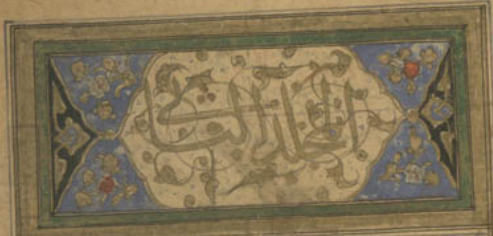 المجلد الثانى